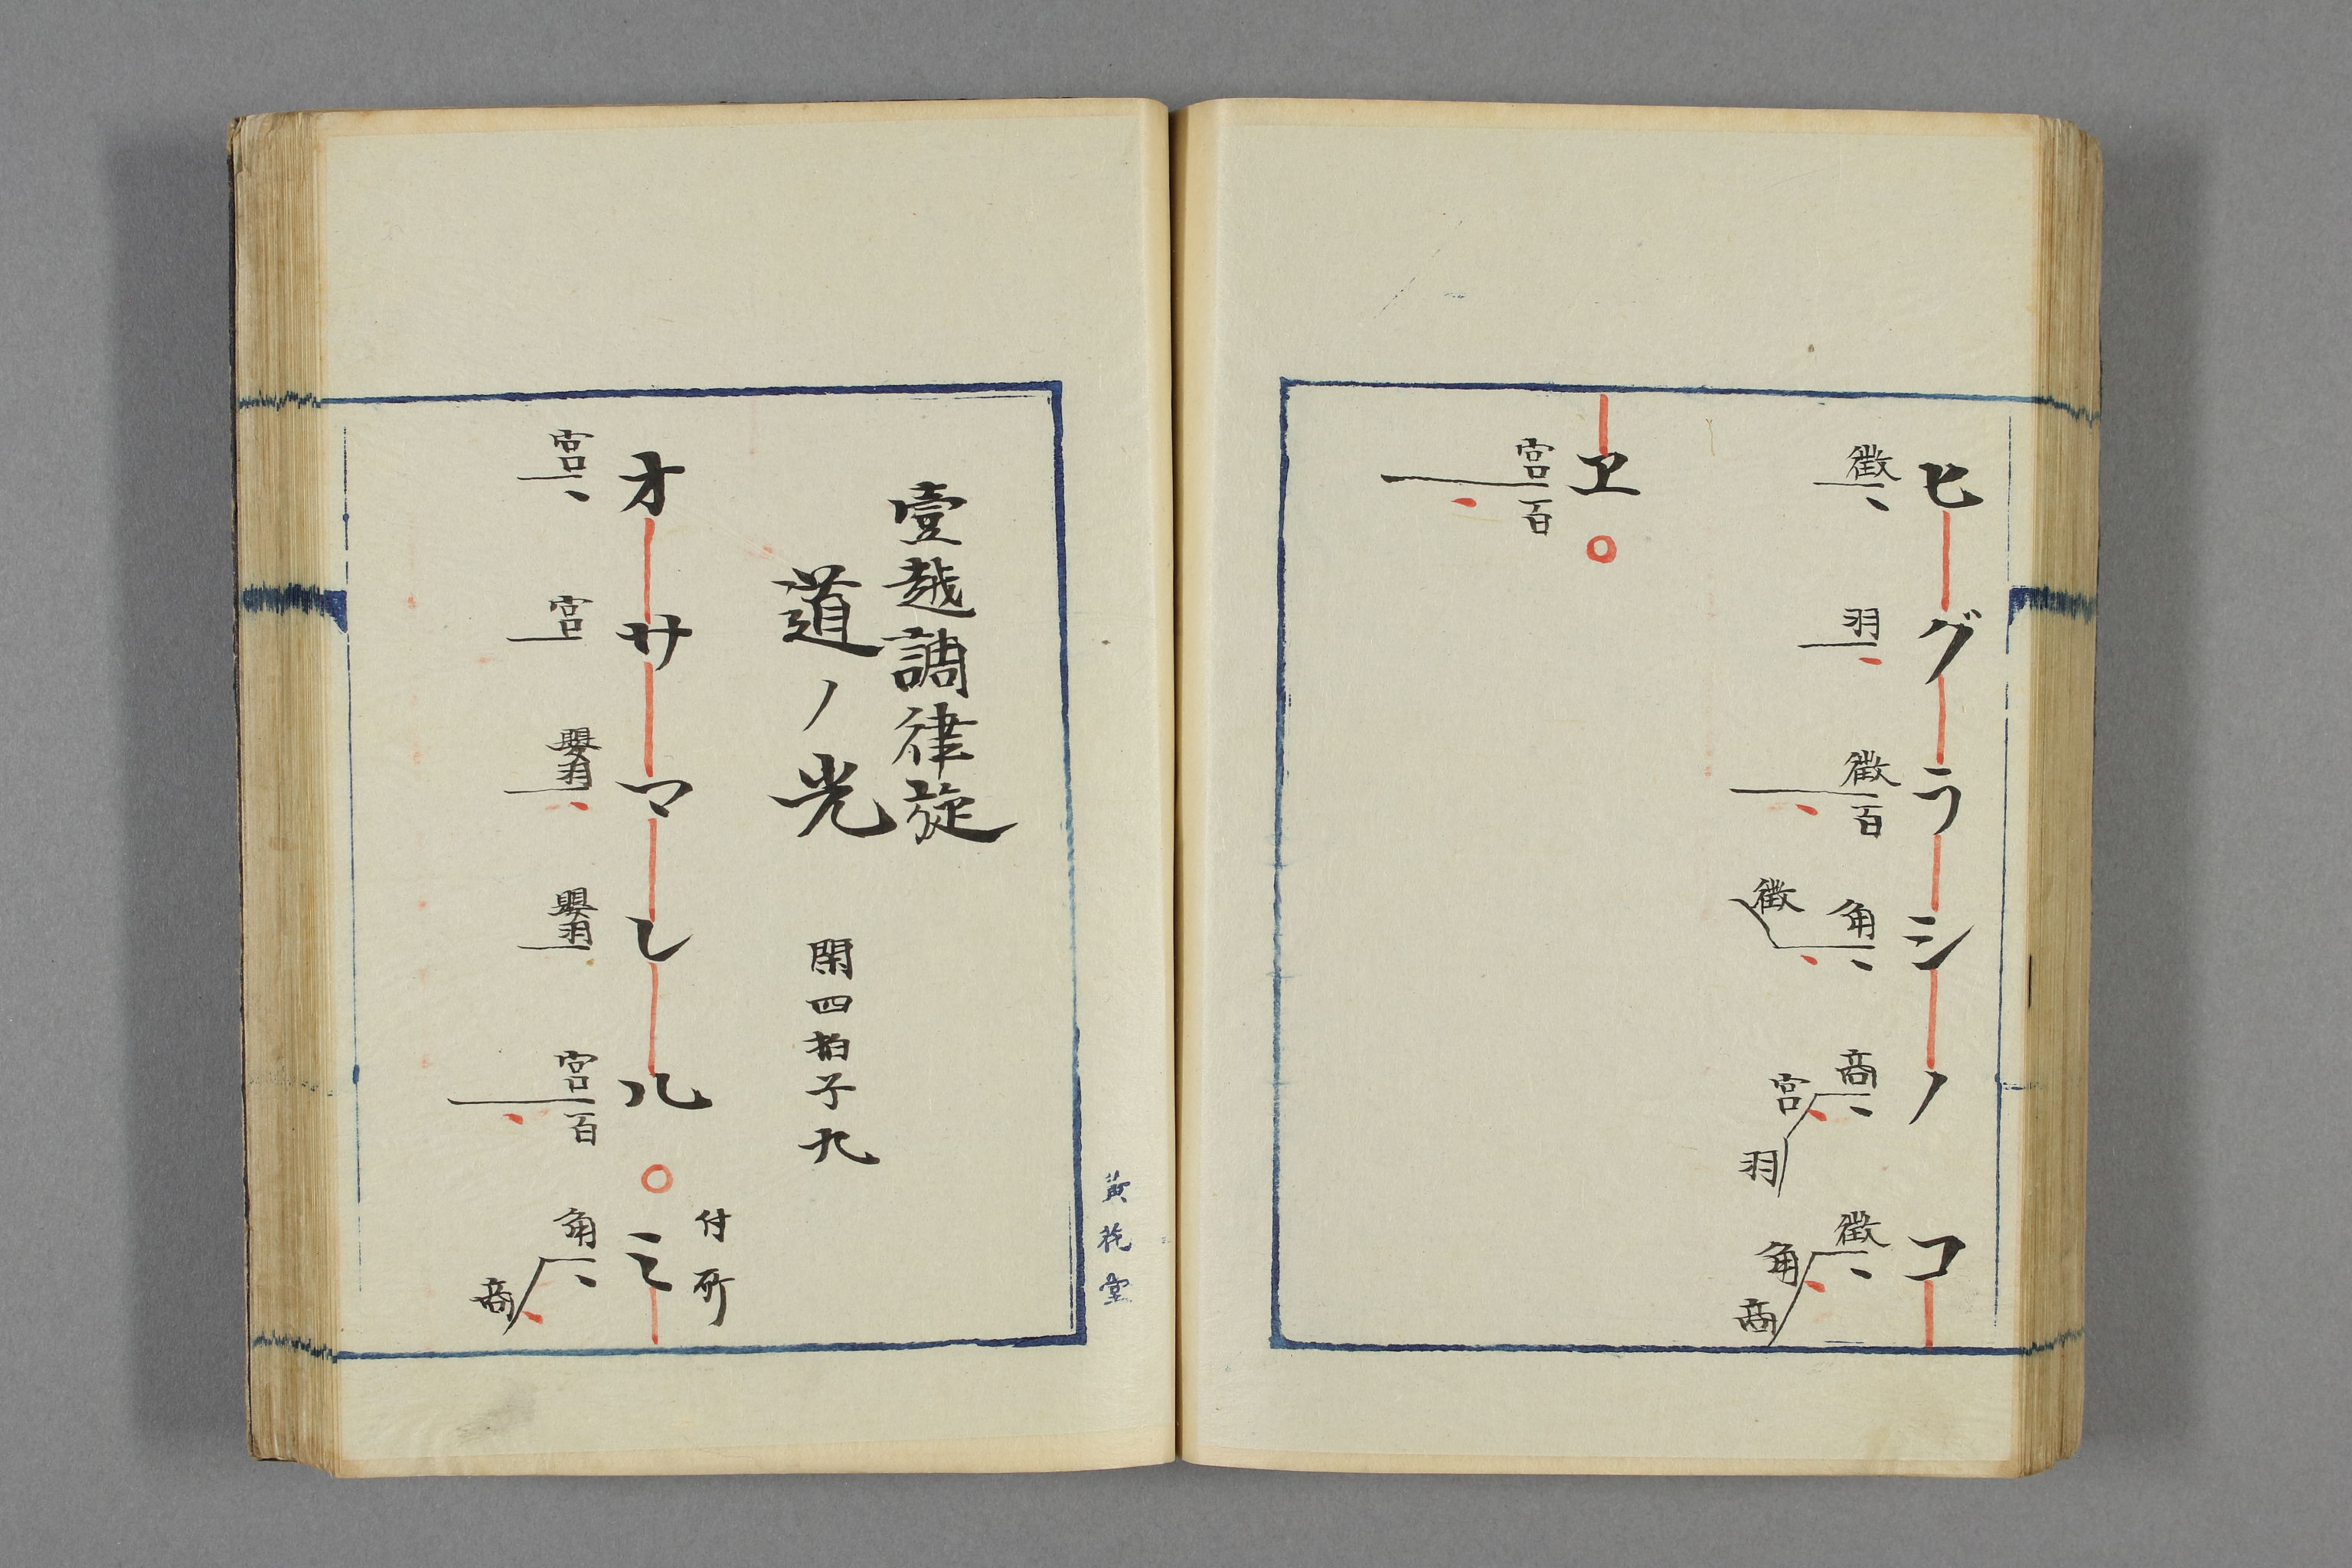 ヒグラシノコ
徴 羽 徴百 角徴 商宮羽 徴角商
ヱ
宮百
壹越調律旋
道ノ光 閑四拍子九
付所
オサマレルミ
宮 宮 嬰羽 嬰羽 宮百 角商